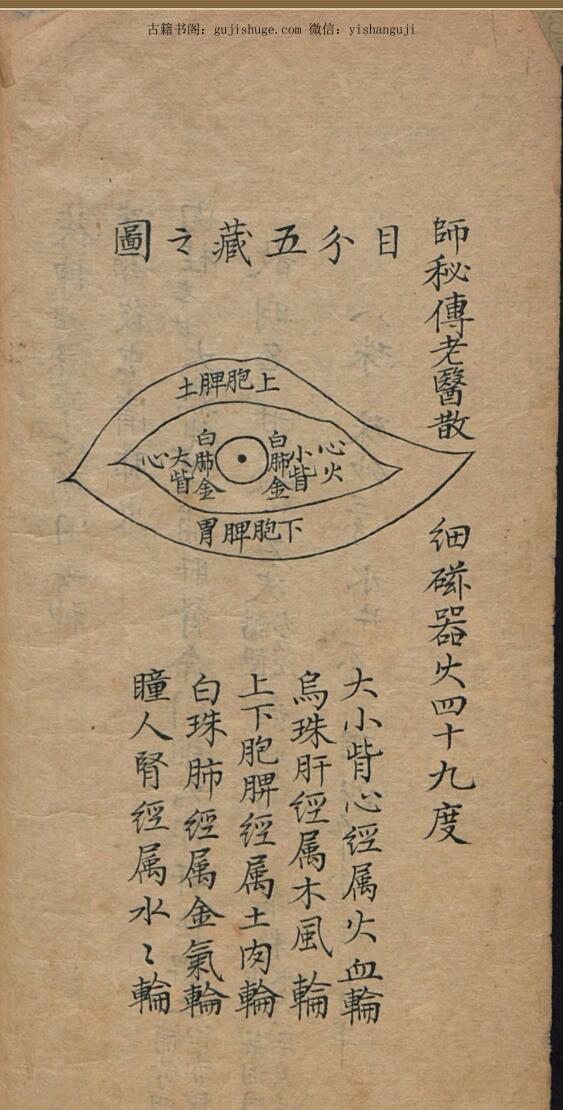 古籍书阁：gujishuge.com 微信：yishanguji
師秘傳老醫散 細磁器火四十九度
目分五藏之圖
上胞脾土
心火
小眥
白肺金
白肺金
大眥
心
下胞脾胃
大小眥心經属火血輪
烏珠肝經属木風輪
上下胞脾經属土肉輪
白珠肺經属金氣輪
瞳人腎經属水〻輪